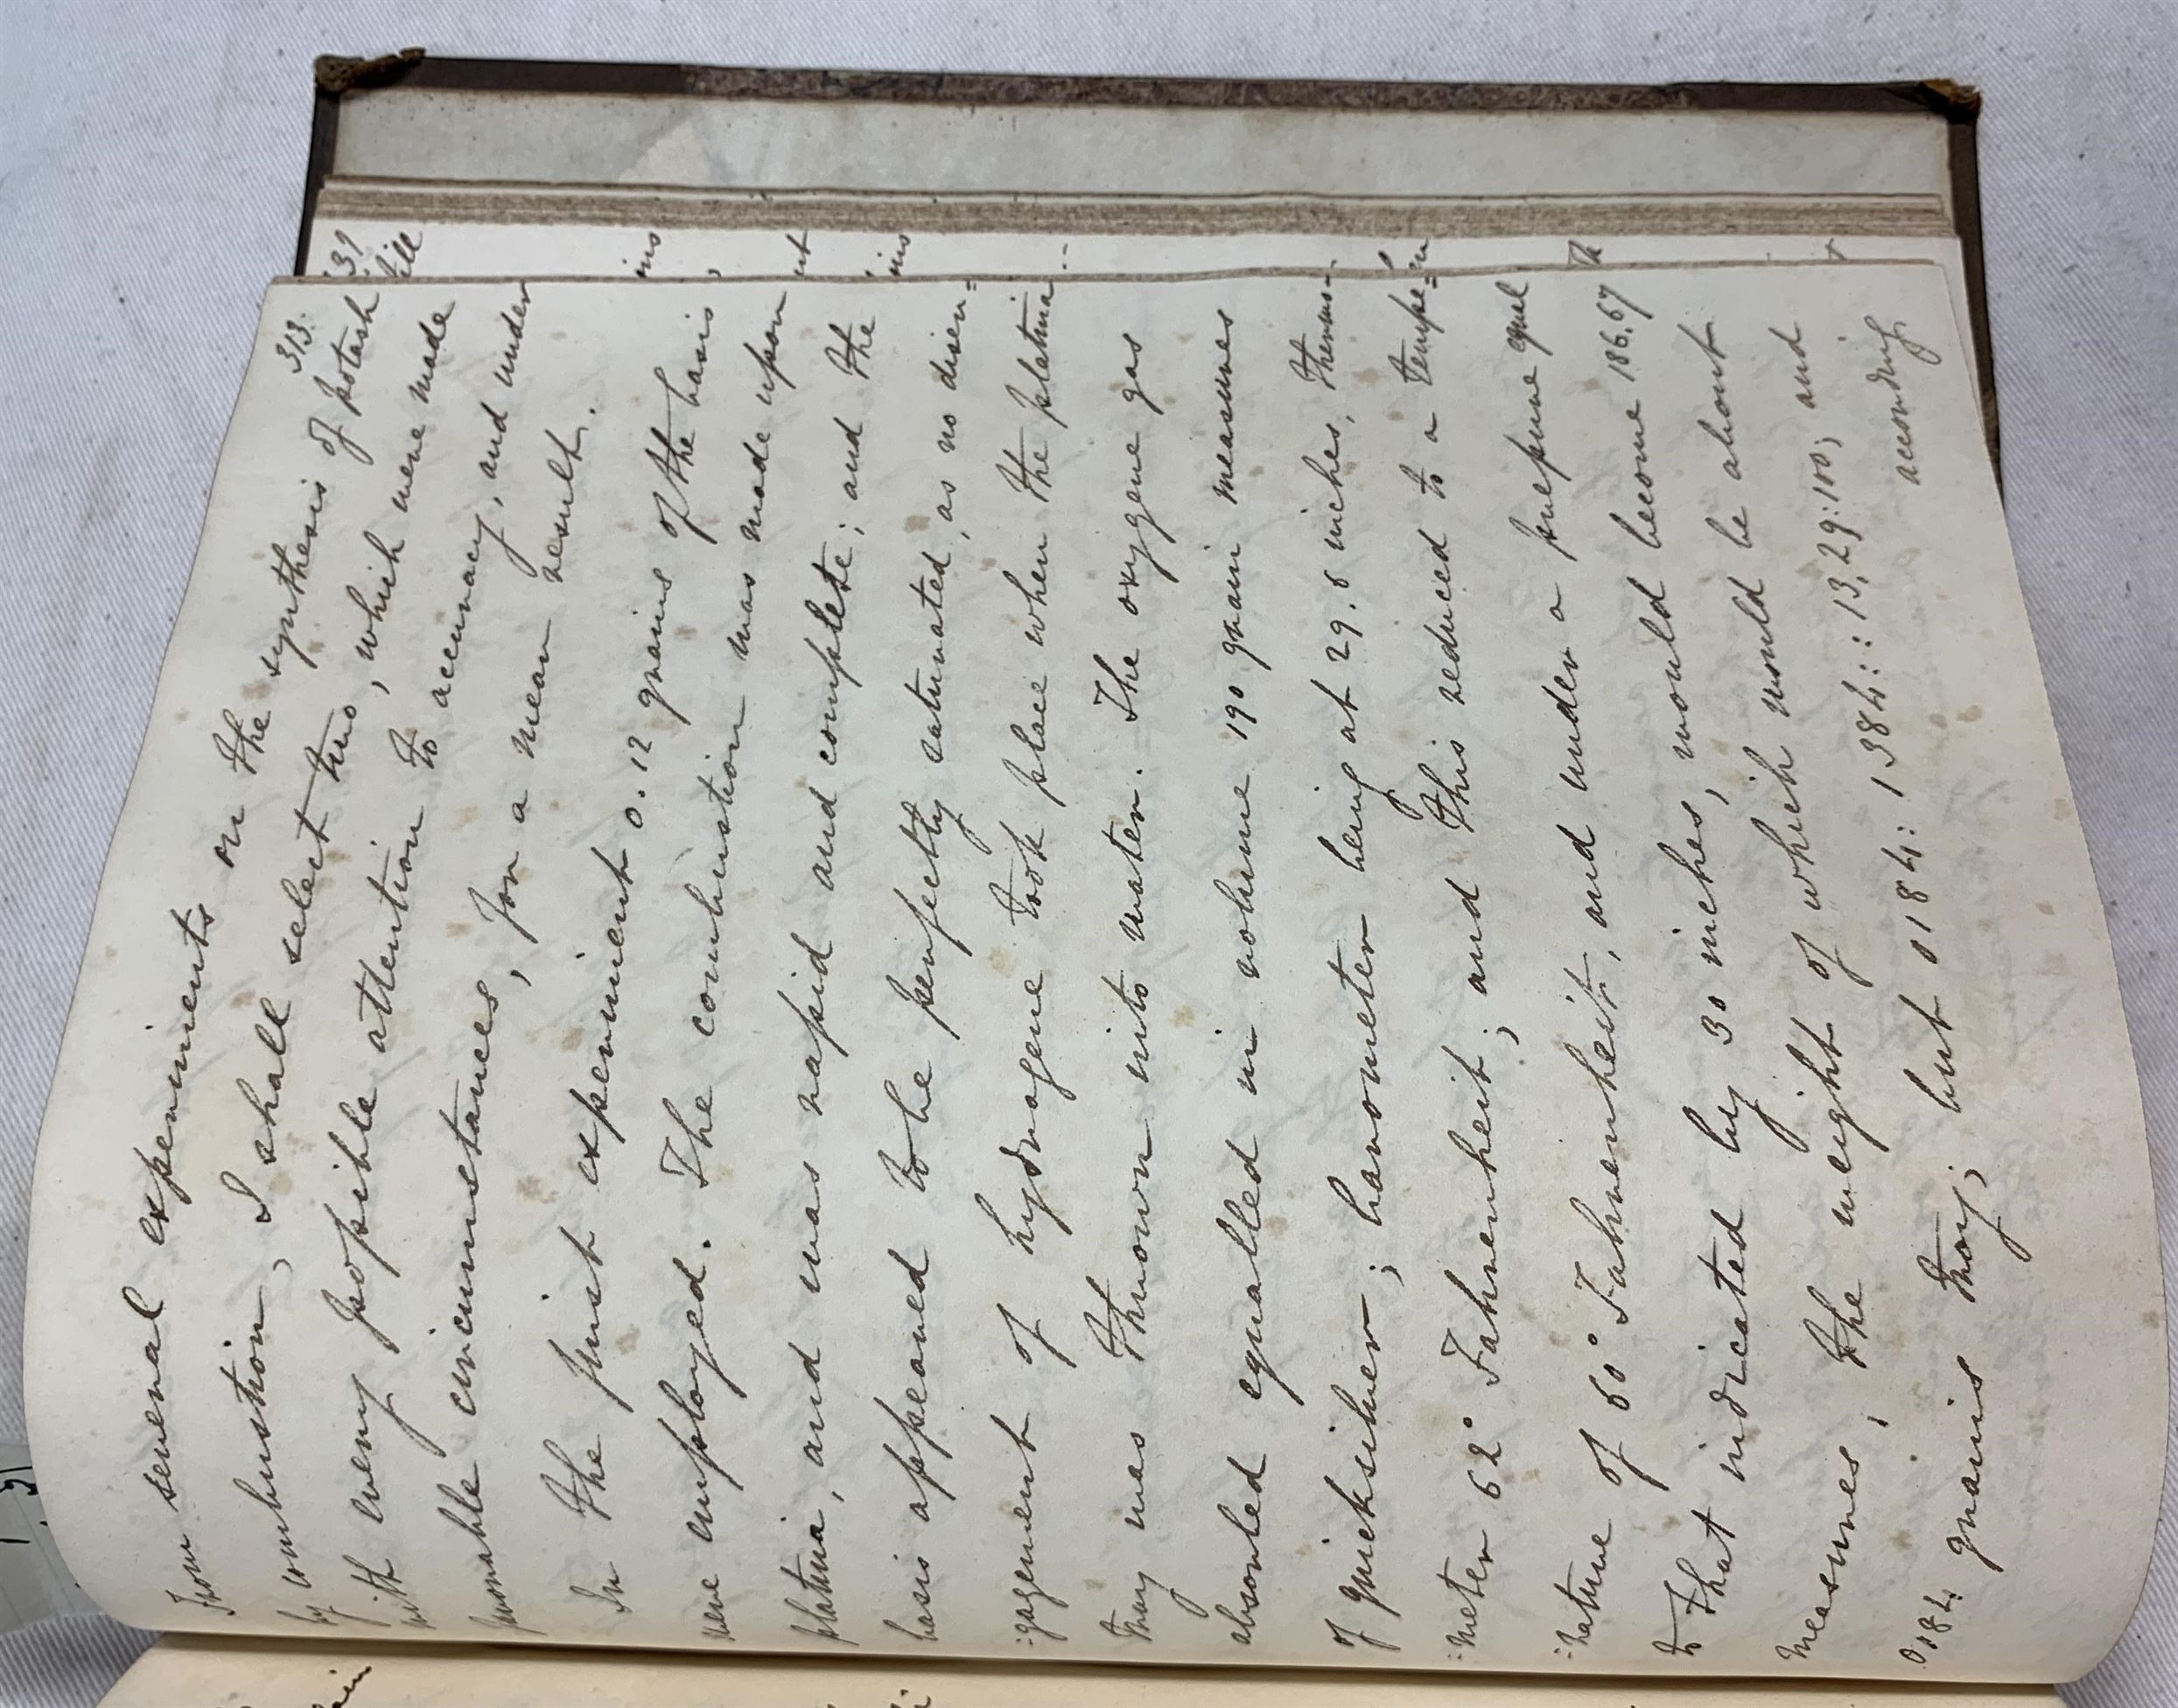 313:
From several experiments on the synthesis of potash
by combustion, I shall select two, which were made
with every possible attention to accuracy, and under
favourable circumstances, for a mean result.
In the first experiment 0.12 grains of the basis
were employed. The combustion was made upon
platina, and was rapid and complete; and the
basis appeared to be perfectly saturated, as no disen=
:gagement of hydrogene took place when the platina
tray was thrown into water. The oxygene gas
absorbed equalled in volume 190 grain measures
of quicksilver; barometer being at 29.6 inches, thermo-
:meter 62° Fahrenheit; and this reduced to a tempe=
:rature of 60° Fahrenheit, and under a pressure equal
to that indicated by 30 inches, would become 186.67
measures, the weight of which would be about
0.184 grains troy; but 0184: 1384:: 13,29:100; and
according
39
till
ins
,
ut
ins